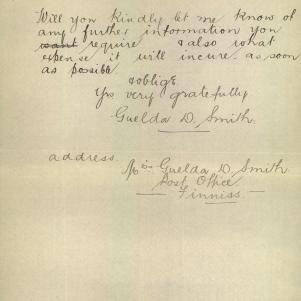 Will you kindly let me know of
any further information you
want require & also what
expense it will incure as soon
as possible
& oblige
Yrs very gratefully
Guelda D. Smith.
address.
Miss Guelda D. Smith
Post Office
Finniss.